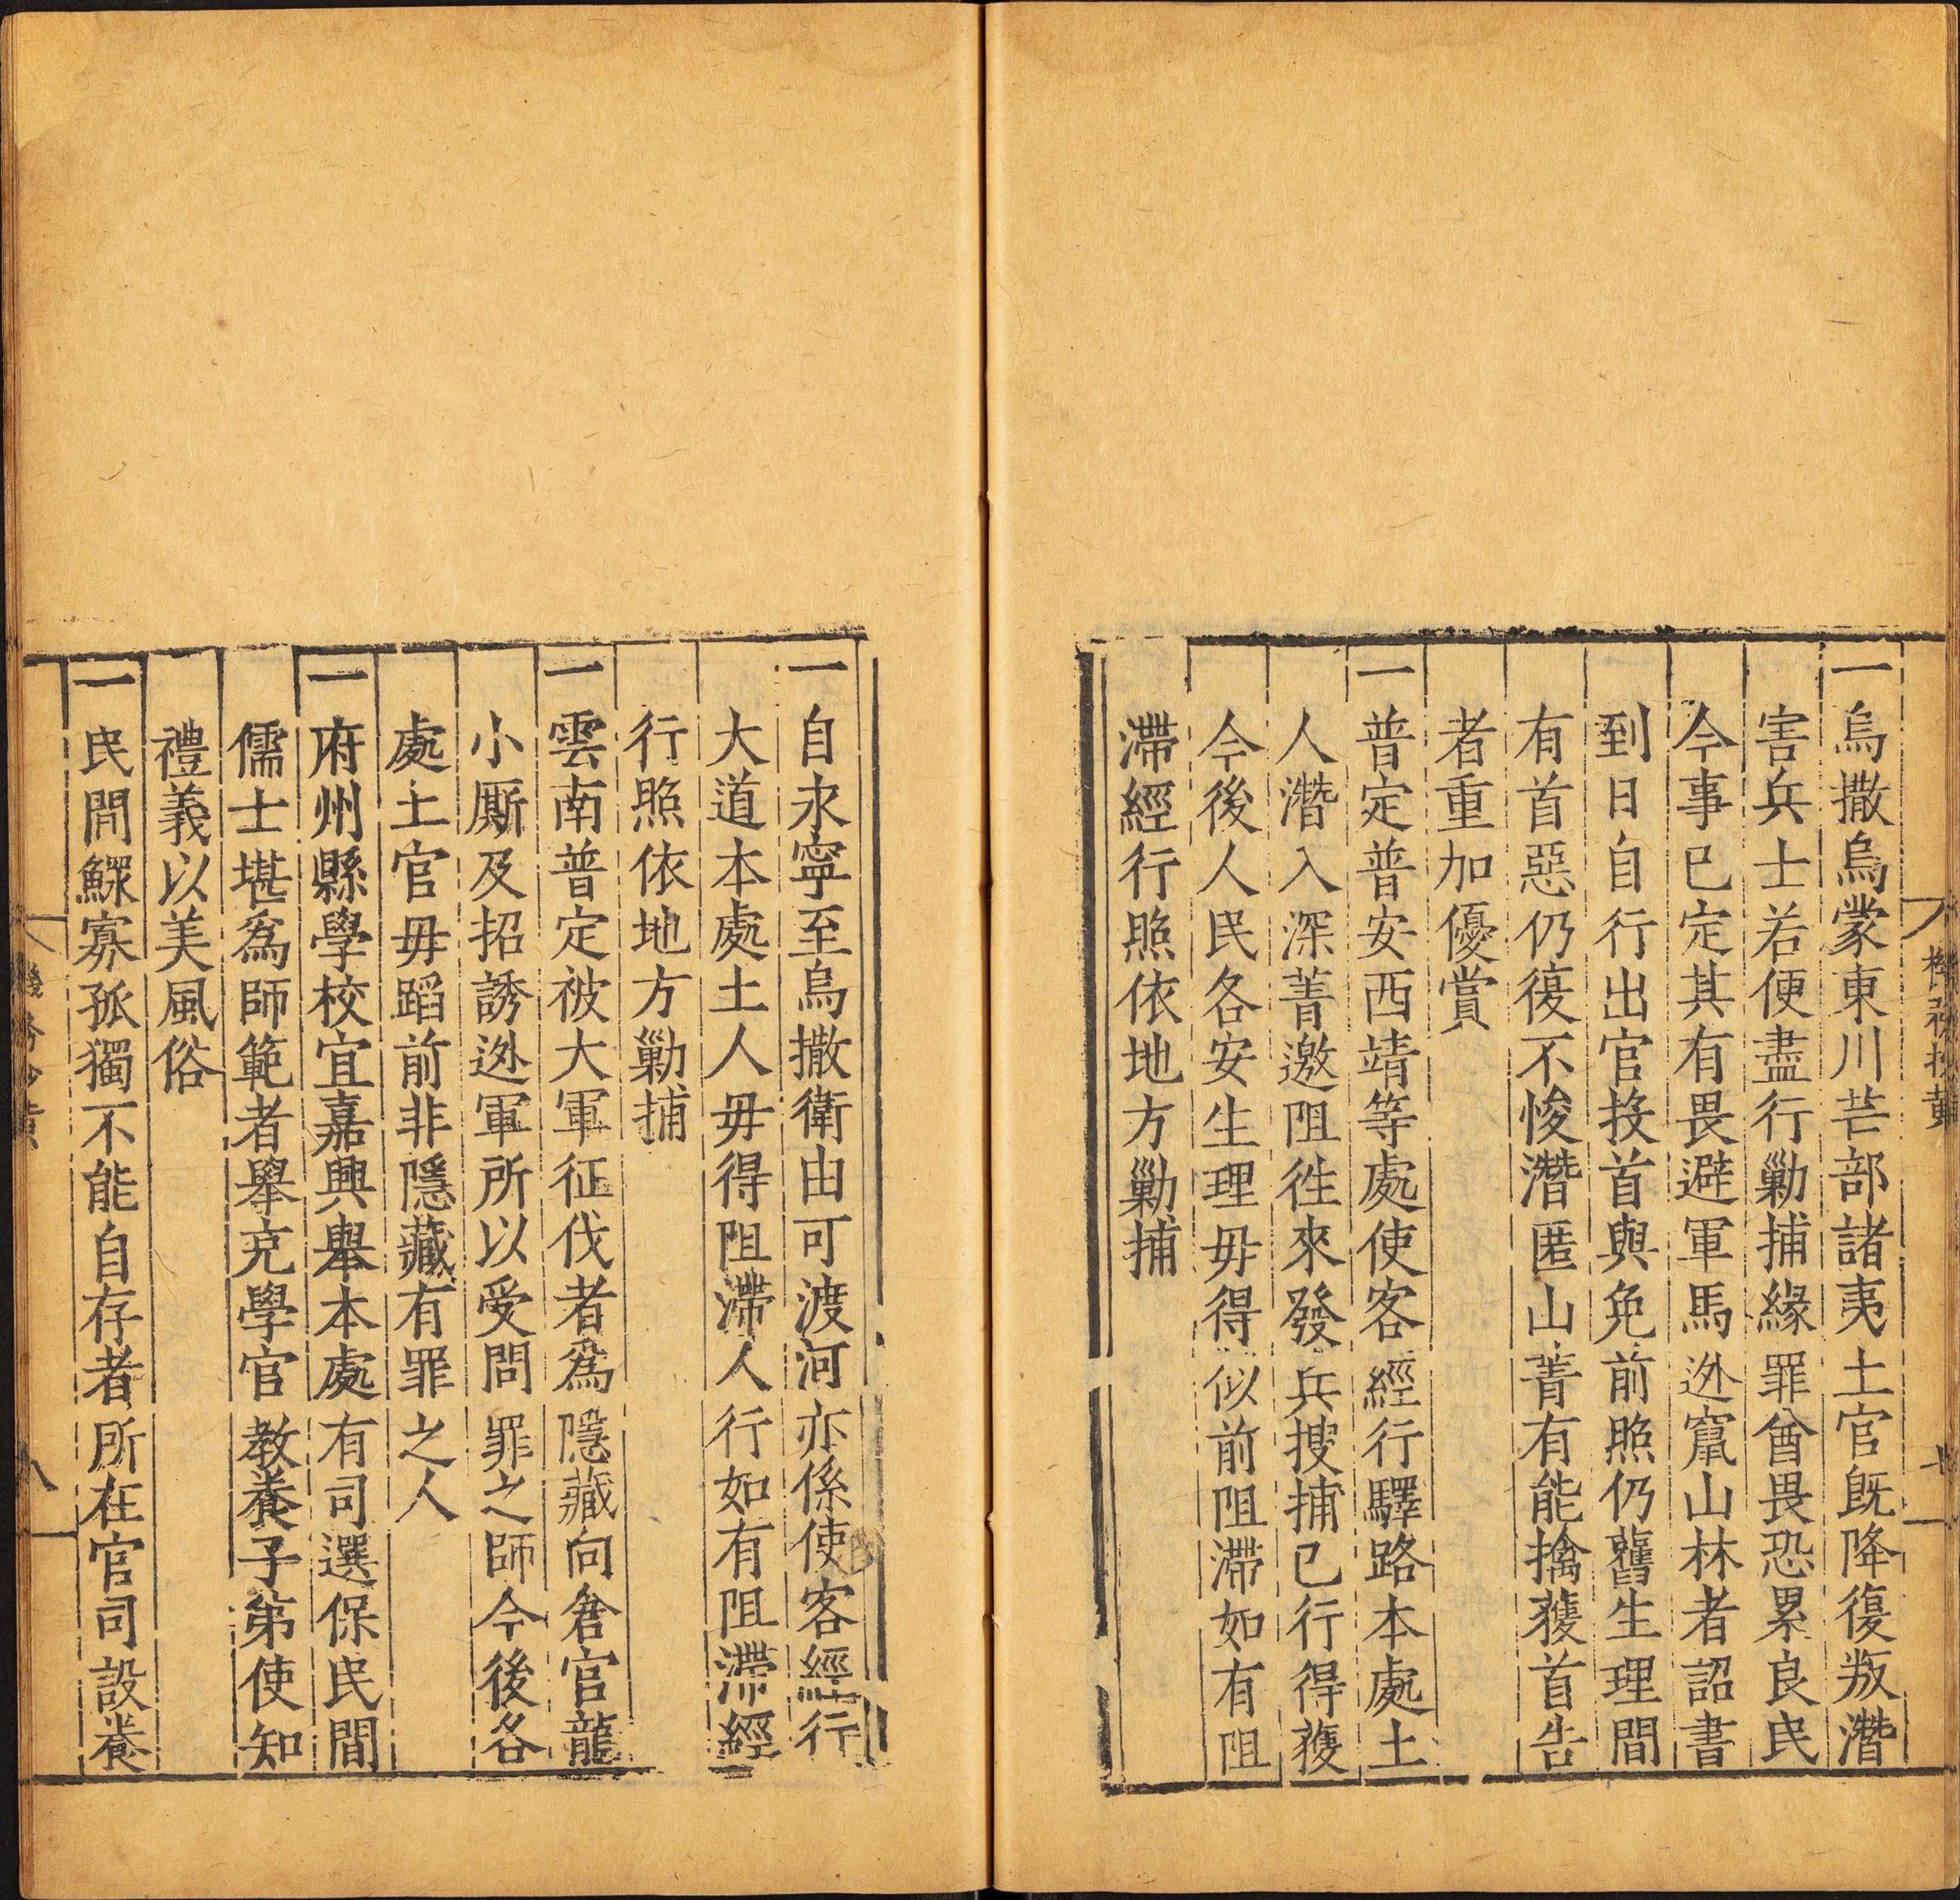 一烏撒烏蒙東川芒部諸夷土官旣降復叛潛
害兵士若便盡行勦捕緣罪酋畏恐累良民
今事已定其有畏避軍馬迯竄山林者詔書
到日自行出官投首與免前照仍舊生理間
有首惡仍復不悛潛匿山菁有能擒獲首告
者重加優賞
一普定普安西靖等處使客經行驛路本處土
人潛入深菁邀阻徃來發兵搜捕已行得獲
今後人民各安生理毋得似前阻滯如有阻
滯經行照依地方勦捕
一自永寧至烏撒衛由可渡河亦係使客經行
大道本處土人毋得阻滯人行如有阻滯經
行照依地方勦捕
一雲南普定被大軍征伐者爲隱藏向倉官龍
小厮及招誘迯軍所以受問罪之師今後各
處土官毋蹈前非隱藏有罪之人
一府州縣學校宜嘉興舉本處有司選保民間
儒士堪爲師範者舉充學官教養子弟使知
禮義以美風俗
一民間鰥寡孤獨不能自存者所在官司設養
八